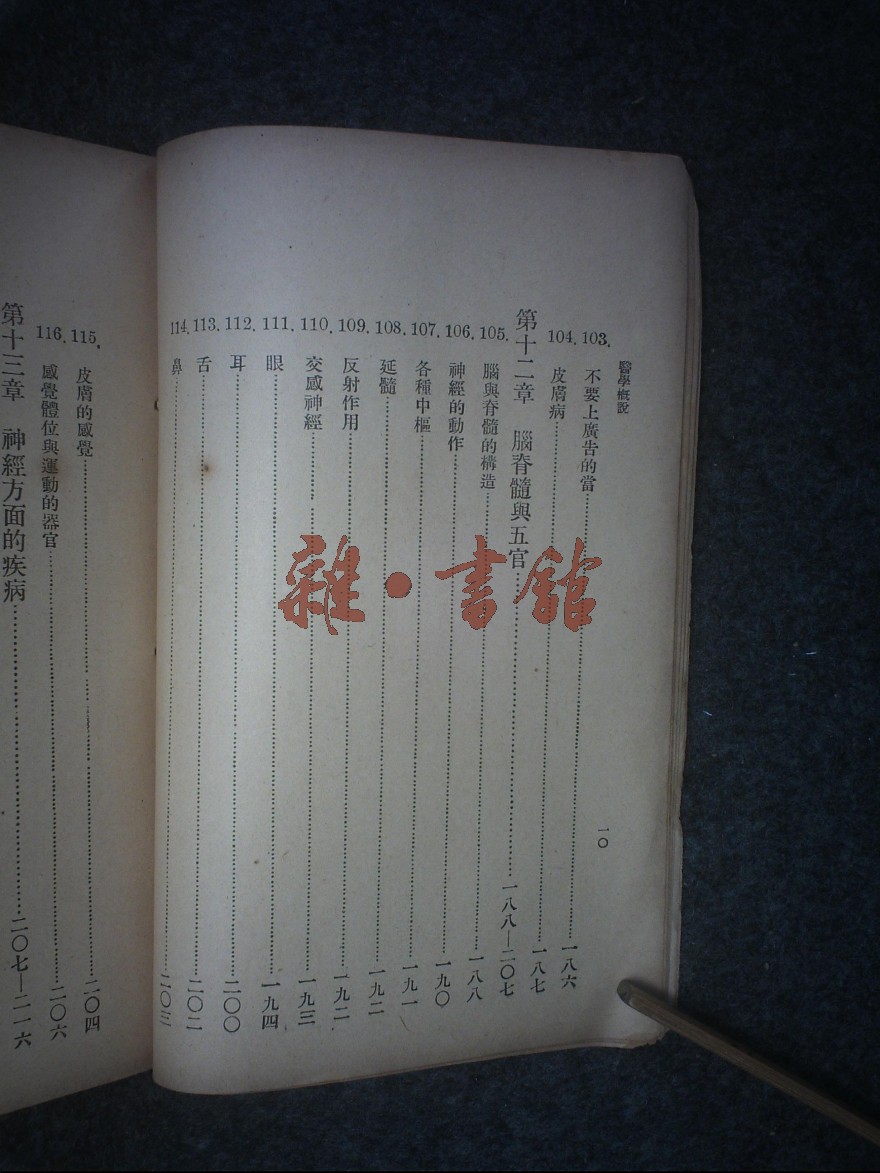 醫學概說
一〇
103. 不要上廣告的當 一八六
104. 皮膚病 一八七
第十二章 腦脊髓與五官 一八八—二〇七
105. 腦與脊髓的構造 一八八
106. 神經的動作 一九〇
107. 各種中樞 一九一
108. 延髓 一九二
109. 反射作用 一九二
110. 交感神經 一九三
111. 眼 一九四
112. 耳 二〇〇
113. 舌 二〇二
114. 鼻 二〇三
115. 皮膚的感覺 二〇四
116. 感覺體位與運動的器官 二〇六
第十三章 神經方面的疾病 二〇七—二一六
雜·書館